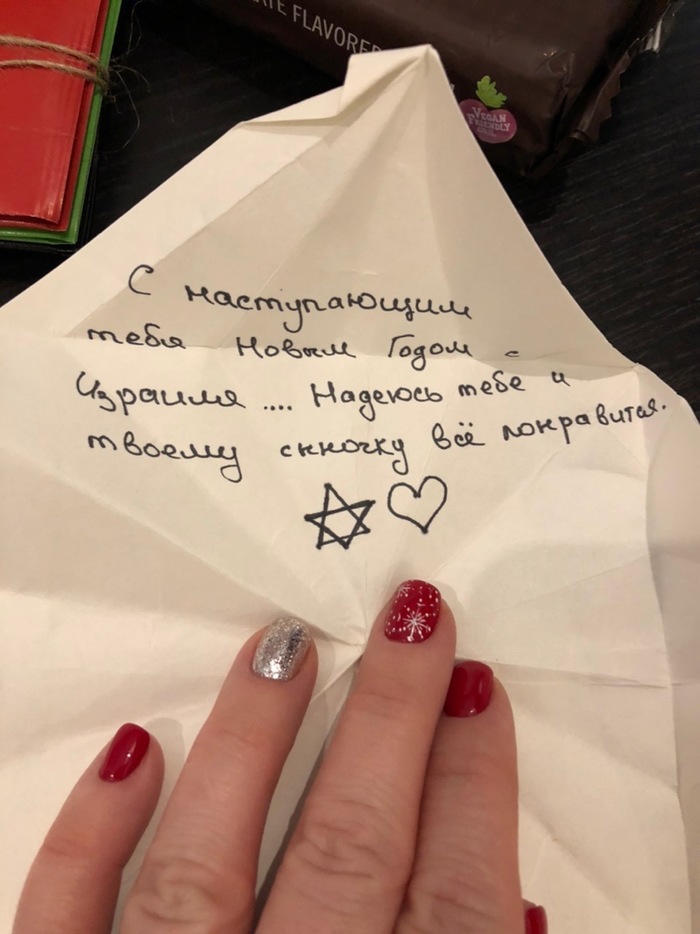 ATE FLAVORED
VEGAN
FRIENDLY
С наступающим
тебя Новым Годом с
Израиля .... Надеюсь тебе и
твоему сыночку всё понравится.